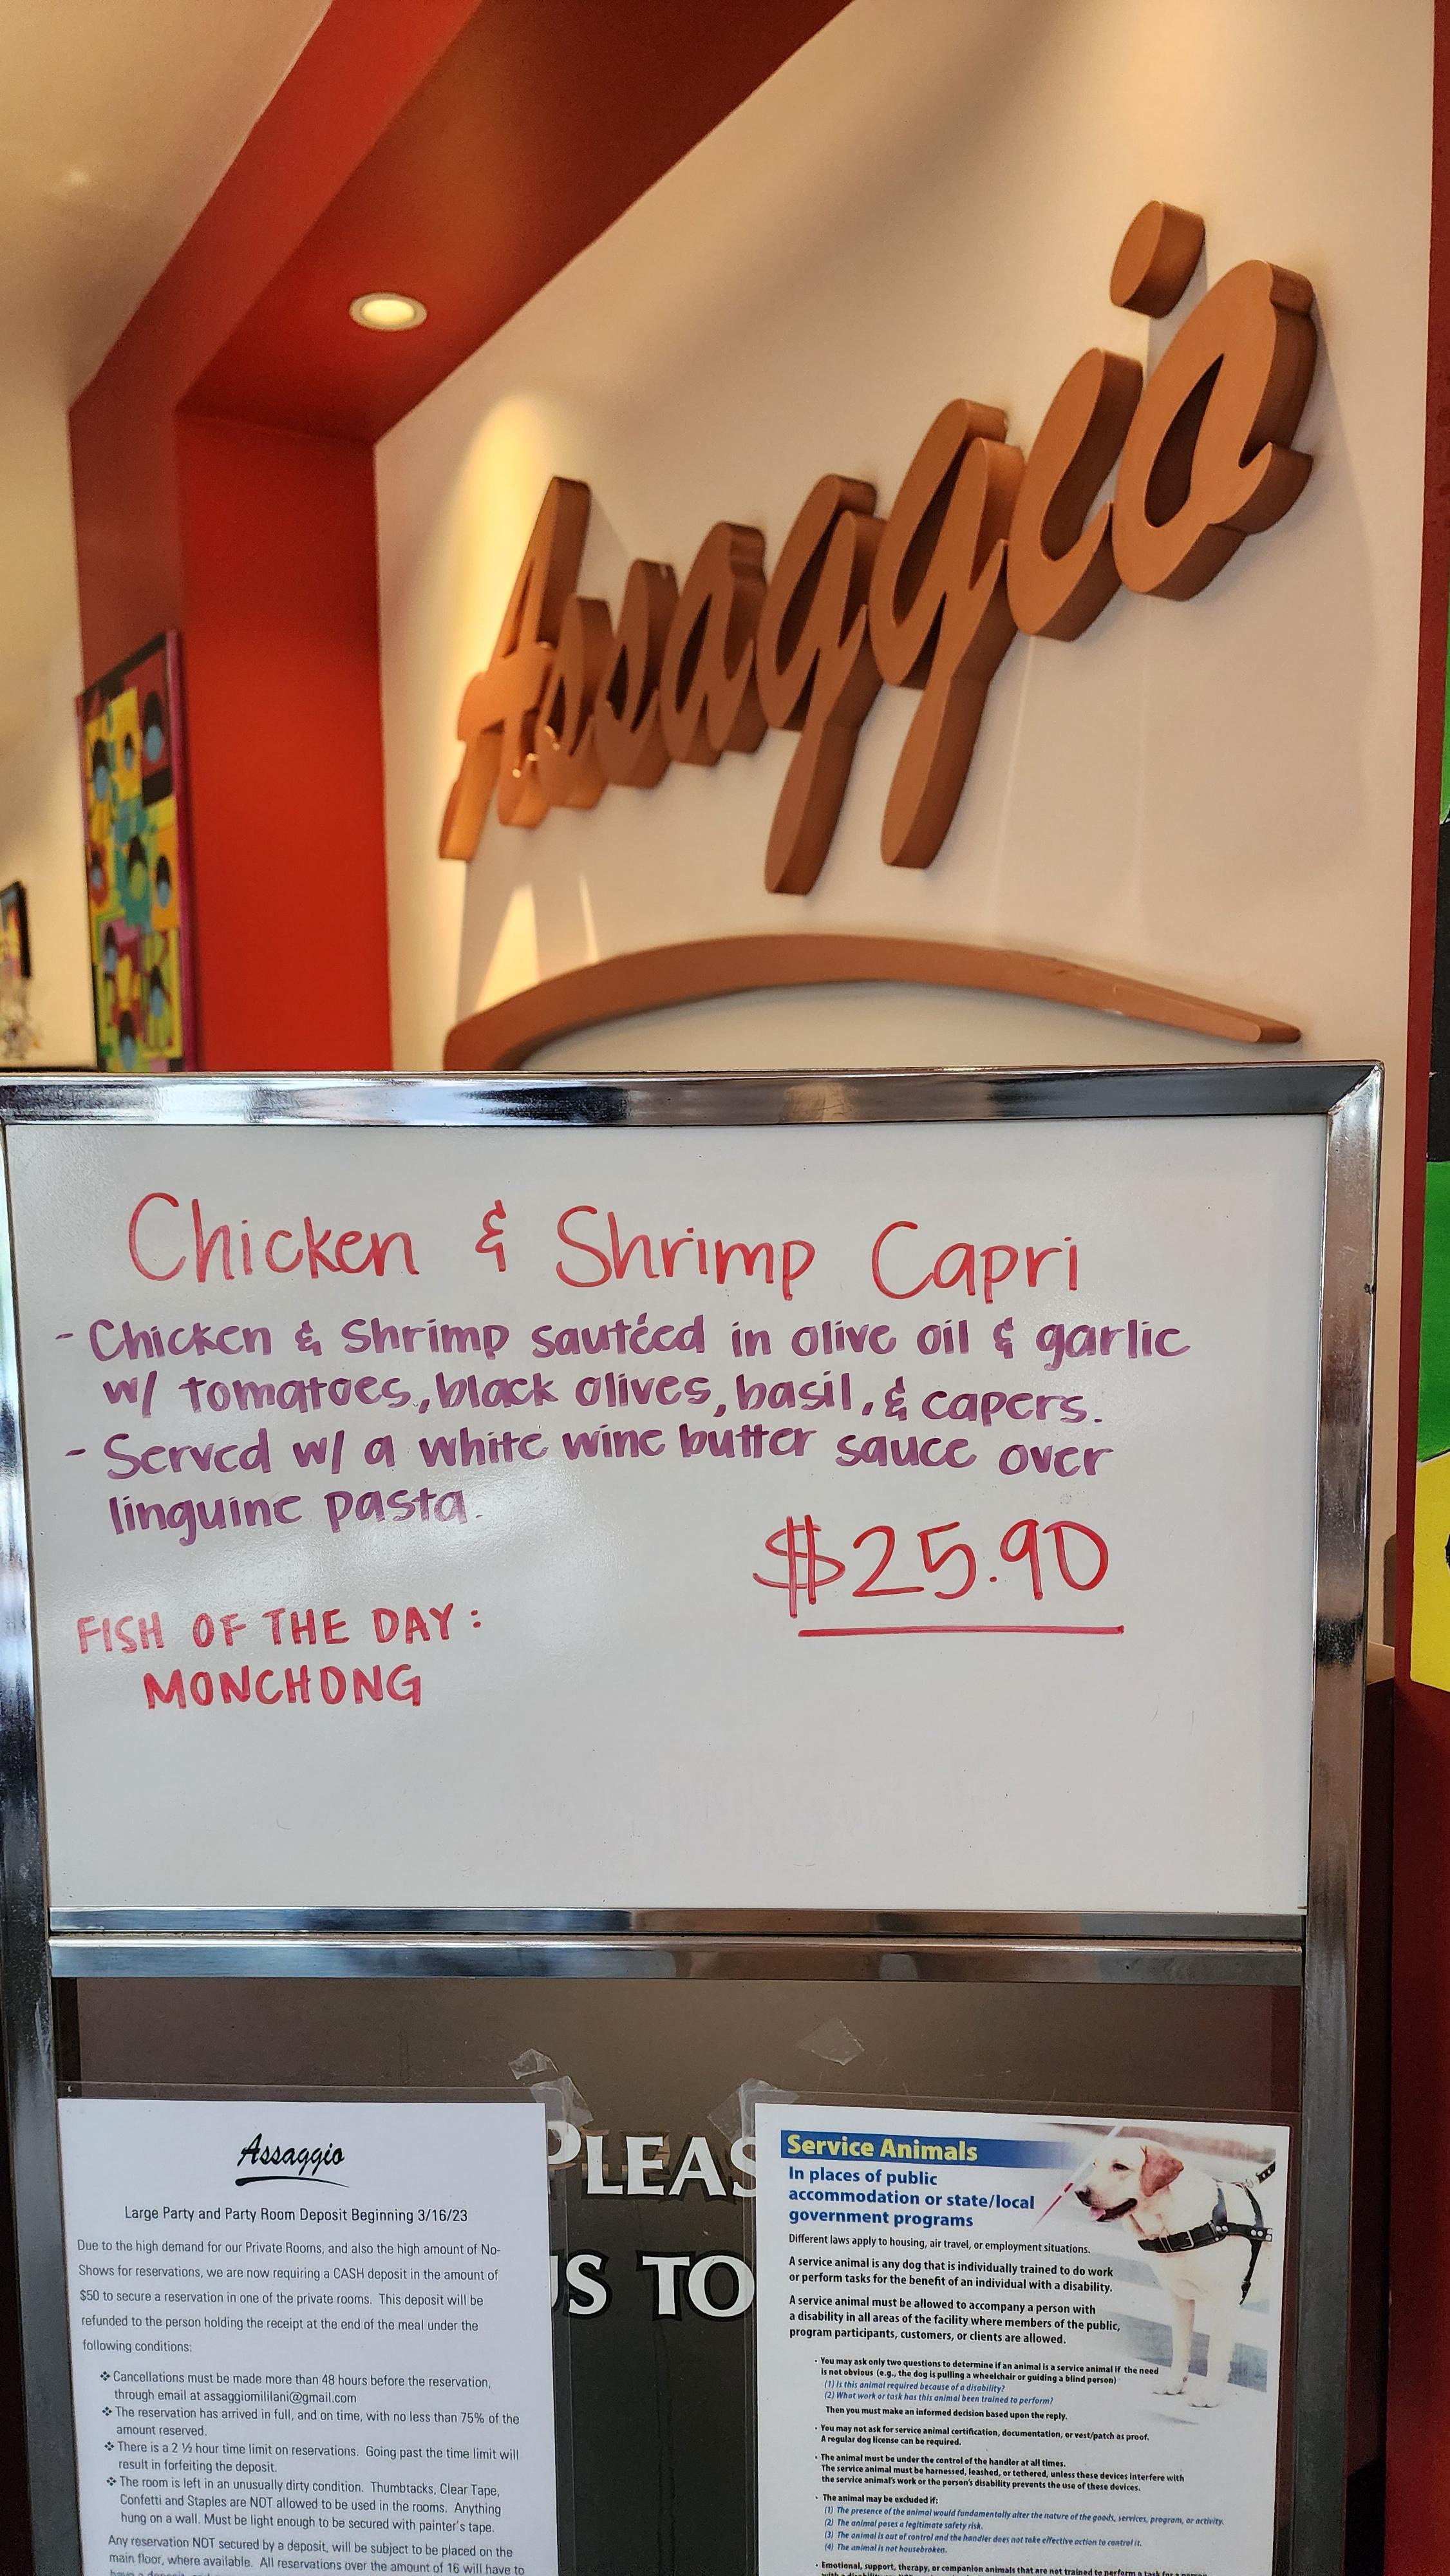 Assaggio
Chicken & Shrimp Capri
- Chicken & Shrimp sautéed in olive oil & garlic
w/ tomatoes, black olives, basil, & capers.
- Served w/ a white wine butter sauce over
linguine pasta.
$25.90
FISH OF THE DAY:
MONCHONG
PLEAS
US TO
Assaggio
Large Party and Party Room Deposit Beginning 3/16/23
Due to the high demand for our Private Rooms, and also the high amount of No-
Shows for reservations, we are now requiring a CASH deposit in the amount of
$50 to secure a reservation in one of the private rooms. This deposit will be
refunded to the person holding the receipt at the end of the meal under the
following conditions:
❖ Cancellations must be made more than 48 hours before the reservation,
through email at assaggiomililani@gmail.com
❖ The reservation has arrived in full, and on time, with no less than 75% of the
amount reserved.
❖ There is a 2 ½ hour time limit on reservations. Going past the time limit will
result in forfeiting the deposit.
❖ The room is left in an unusually dirty condition. Thumbtacks, Clear Tape,
Confetti and Staples are NOT allowed to be used in the rooms. Anything
hung on a wall. Must be light enough to be secured with painter's tape.
Any reservation NOT secured by a deposit, will be subject to be placed on the
main floor, where available. All reservations over the amount of 16 will have to
Service Animals
In places of public
accommodation or state/local
government programs
Different laws apply to housing, air travel, or employment situations.
A service animal is any dog that is individually trained to do work
or perform tasks for the benefit of an individual with a disability.
A service animal must be allowed to accompany a person with
a disability in all areas of the facility where members of the public,
program participants, customers, or clients are allowed.
• You may ask only two questions to determine if an animal is a service animal if the need
is not obvious (e.g., the dog is pulling a wheelchair or guiding a blind person)
(1) Is this animal required because of a disability?
(2) What work or task has this animal been trained to perform?
Then you must make an informed decision based upon the reply.
• You may not ask for service animal certification, documentation, or vest/patch as proof.
A regular dog license can be required.
• The animal must be under the control of the handler at all times.
The service animal must be harnessed, leashed, or tethered, unless these devices interfere with
the service animal's work or the person's disability prevents the use of these devices.
• The animal may be excluded if:
(1) The presence of the animal would fundamentally alter the nature of the goods, services, program, or activity.
(2) The animal poses a legitimate safety risk.
(3) The animal is out of control and the handler does not take effective action to control it.
(4) The animal is not housebroken.
• Emotional, support, therapy, or companion animals that are not trained to perform a task for a